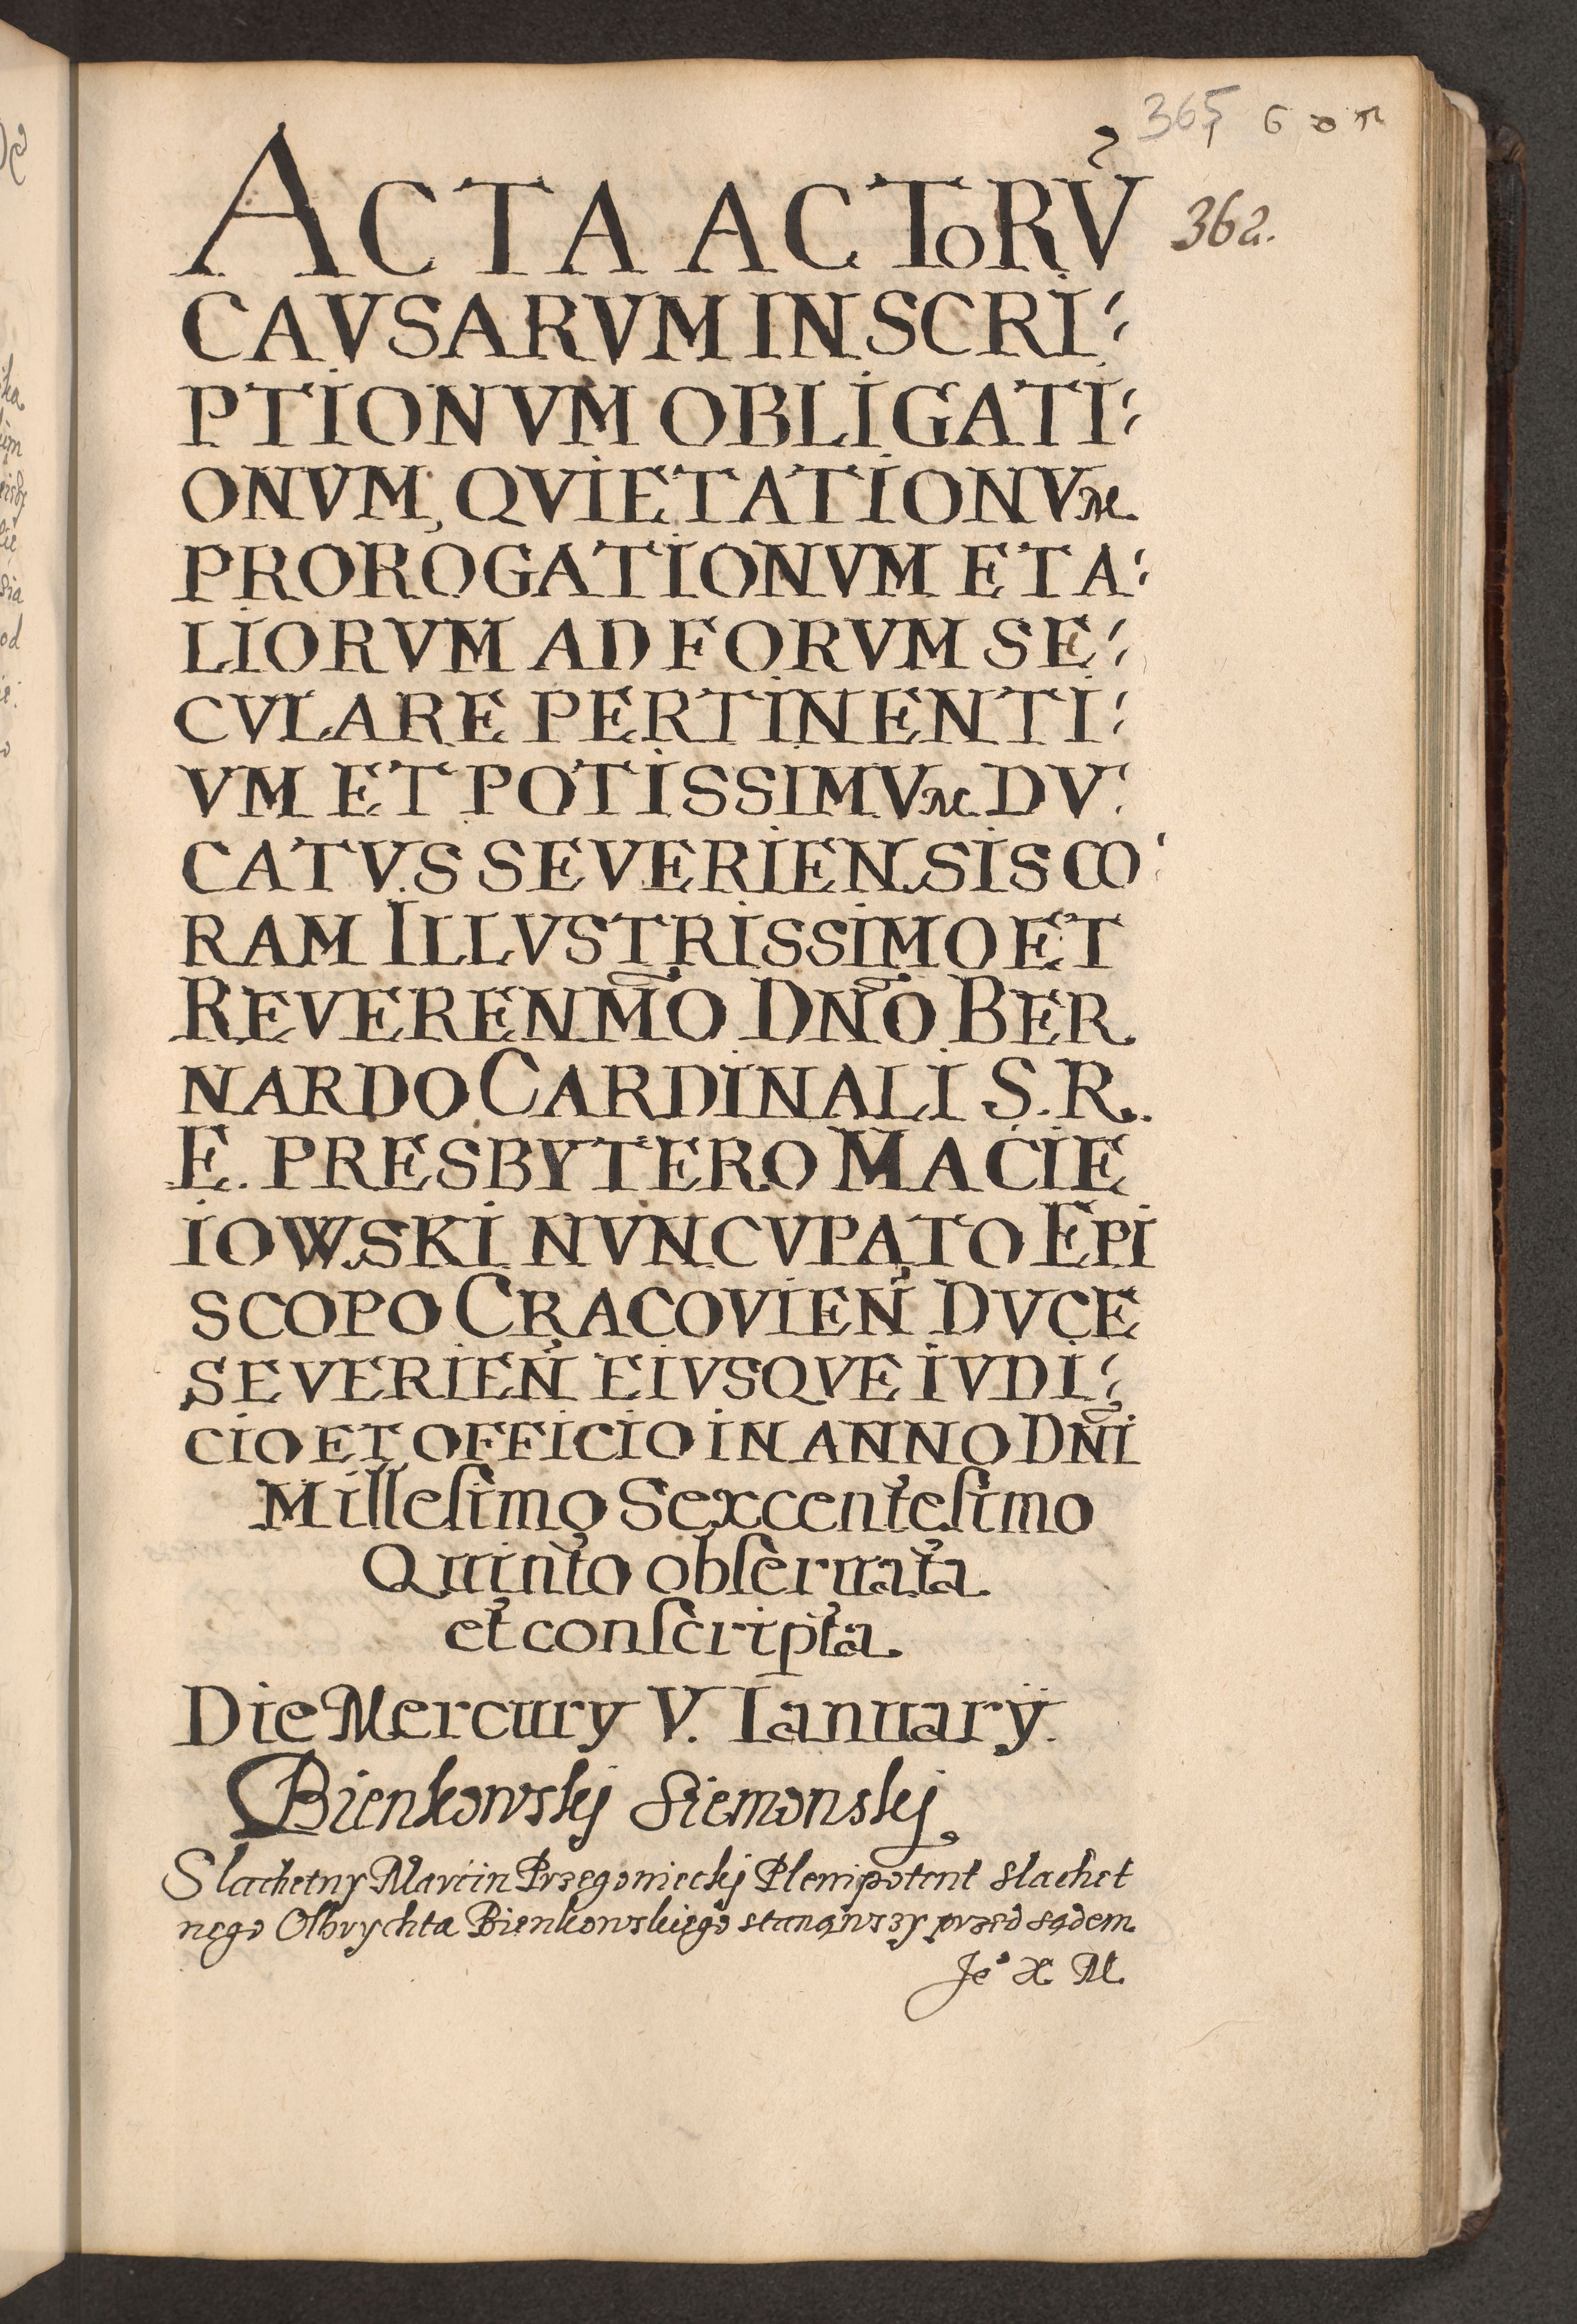 365
362.
ACTA ACTORṼ
CAVSARVM INSCRI:
PTIONVM OBLIGATI:
ONVM, QVIETATIONVM
PROROGATIONVM ET A:
LIORVM AD FORVM SE:
CVLARE PERTINENTI:
VM ET POTISSIMVM DV:
CATVS SEVERIENSIS CO:
RAM ILLVSTRISSIMO ET
REVERENM̃O DÑO BER
NARDO CARDINALI S. R.
E. PRESBYTERO MACIE
IOWSKI NVNCVPATO EPI
SCOPO CRACOVIEÑ DVCE
SEVERIEÑ EIVSQVE IVDI:
CIO ET OFFICIO IN ANNO DÑI
Milleſimo Sexcenteſimo
Quinto obſeruata
et conſcripta
Die Mercury V. Ianuarÿ.
Bienkowskj Siemonskj
Slachetny Marcin Przegonieckj Plenipotent slachet
nego Olbrychta Bienkowskiego stanąwszy przed sądem
Je° X M.